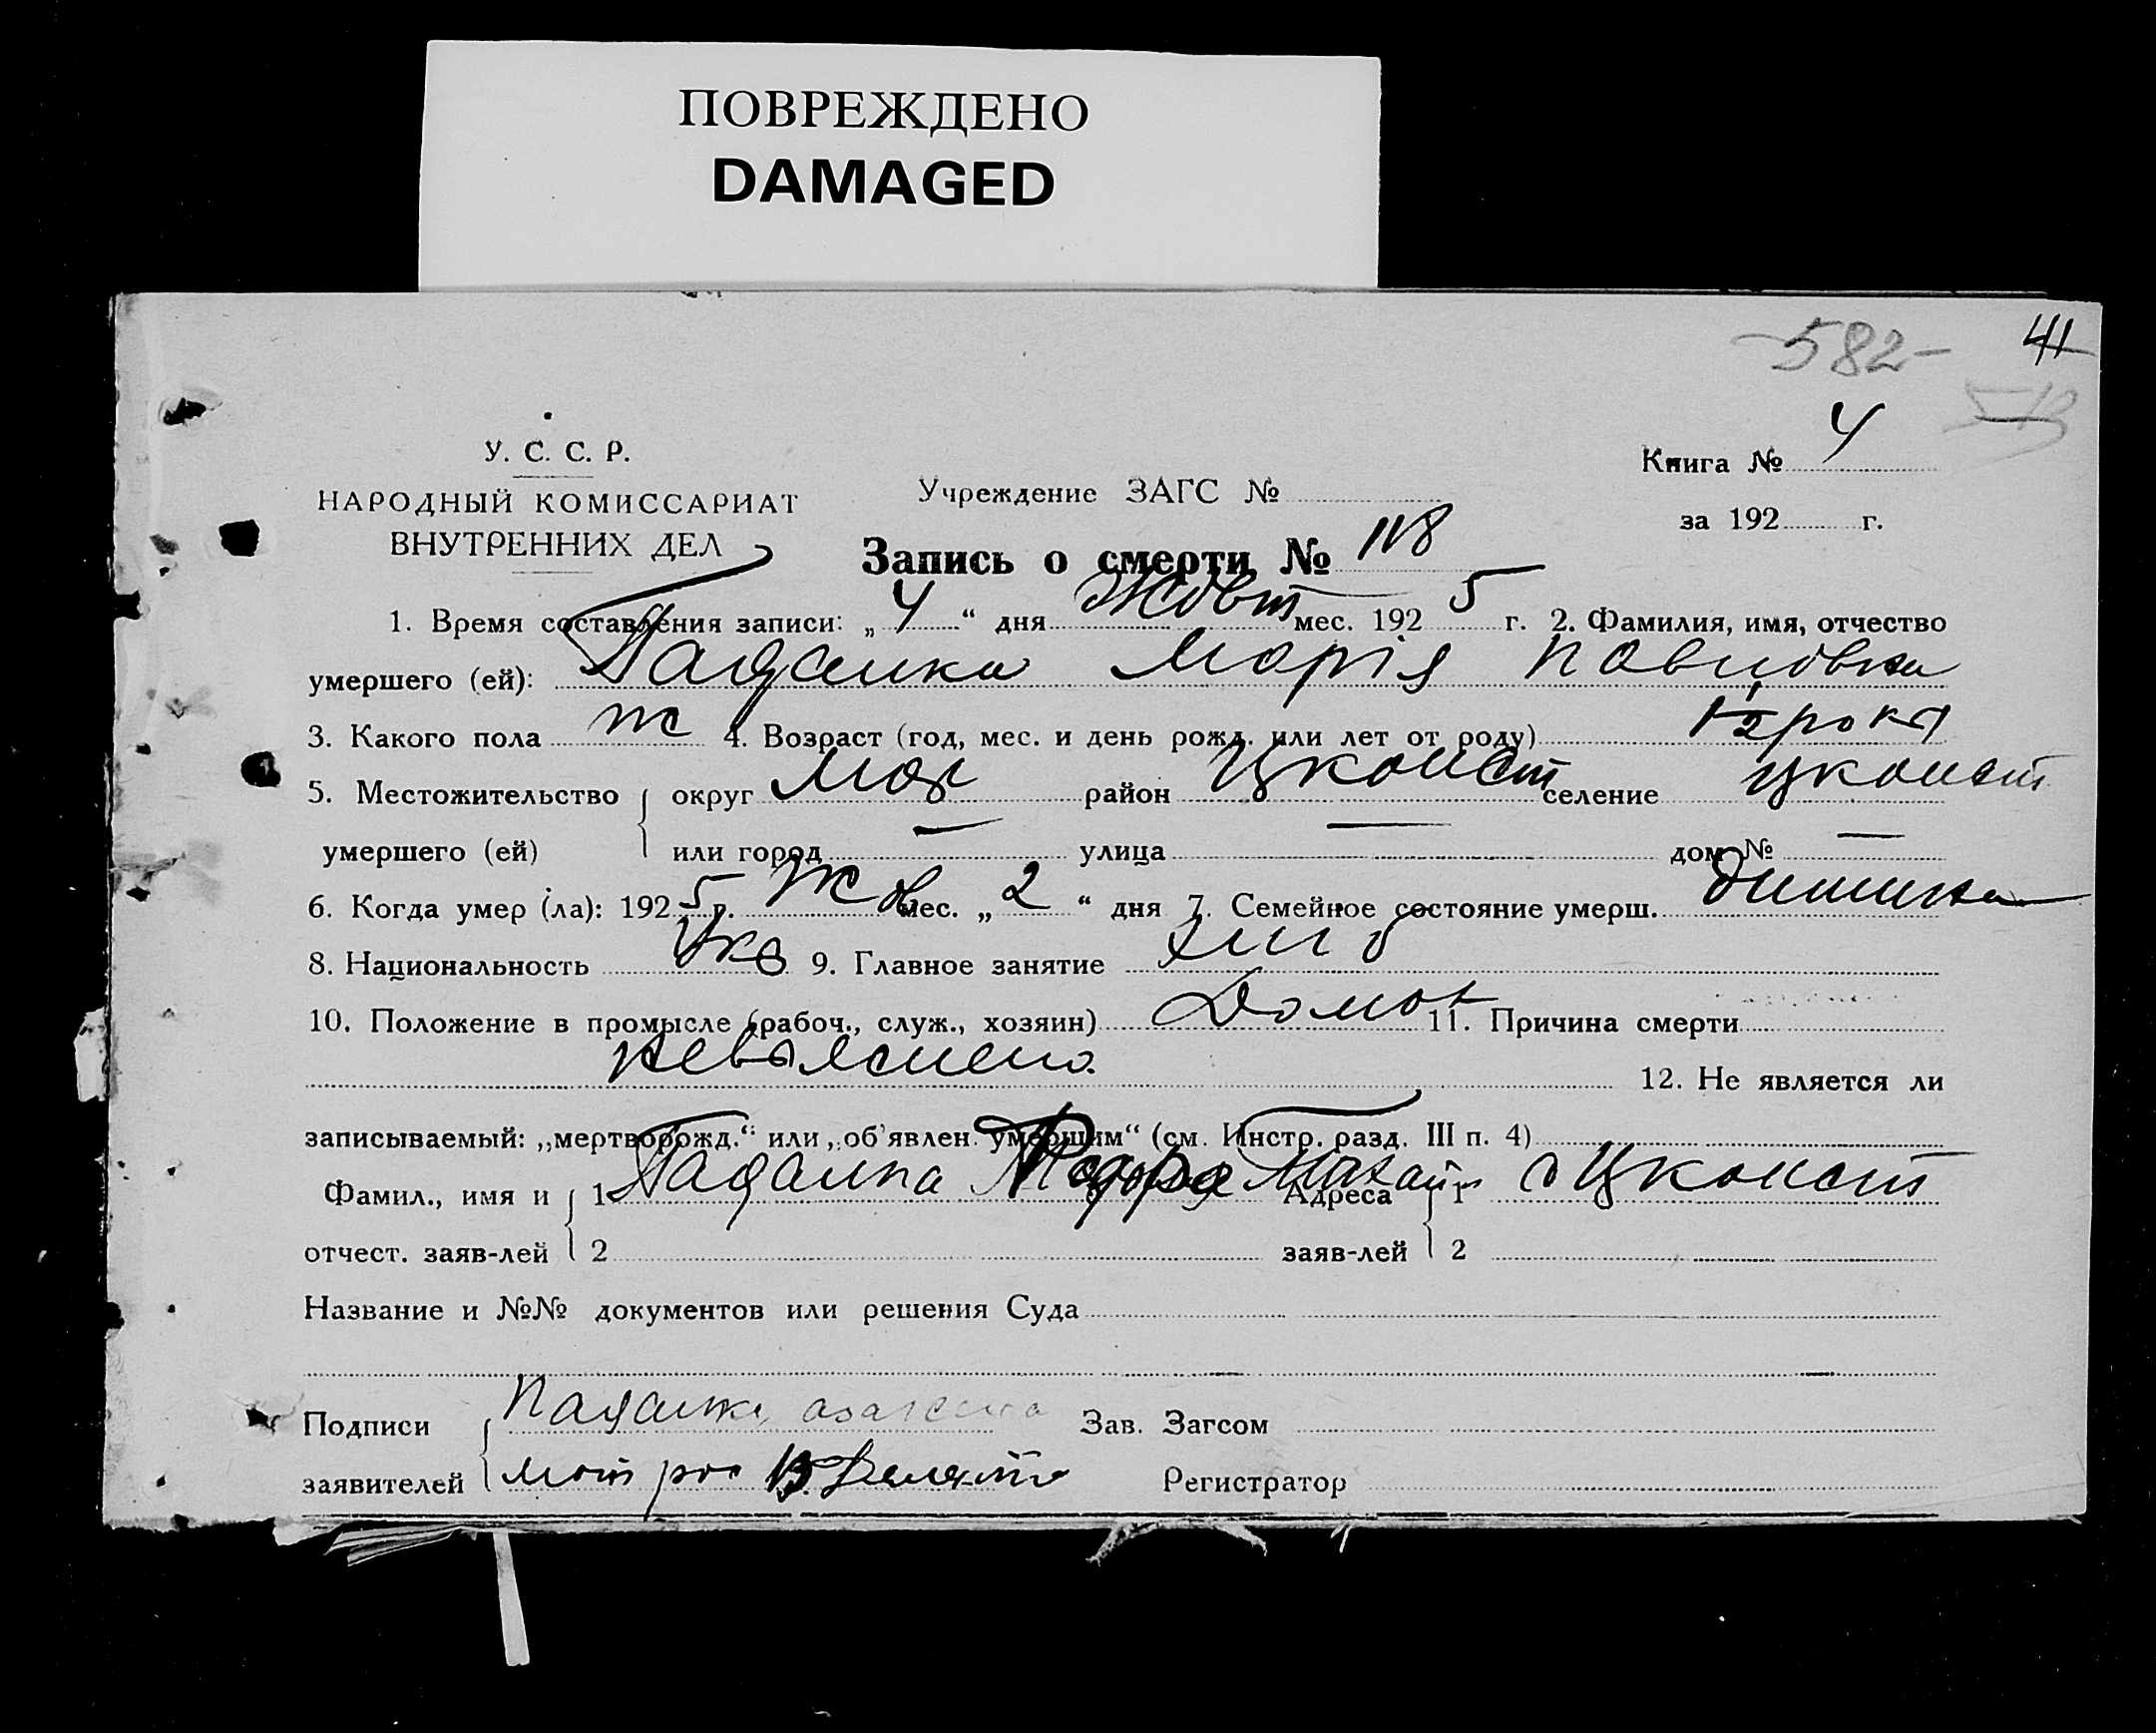 ПОВРЕЖДЕНО
DAMAGED
582 41
У. С. С. Р.
НАРОДНЫЙ КОМИССАРИАТ
ВНУТРЕННИХ ДЕЛ
Учреждение ЗАГС №
Книга № 4
за 192 г.
Запись о смерти № 118
1. Время составления записи: „4“ дня Жовт мес. 1925 г. 2. Фамилия, имя, отчество
умершего (ей): Падалка Марія Павловна
3. Какого пола ж 4. Возраст (год, мес. и день рожд. или лет от роду) рока
5. Местожительство округ район Цконст селение Цконст
умершего (ей) или город — улица — дом № —
6. Когда умер (ла): 1925 г. Жов мес. „2“ дня 7. Семейное состояние умерш. дитина
8. Национальность Укр 9. Главное занятие хліб
10. Положение в промысле (рабоч., служ., хозяин) Домог 11. Причина смерти
невыяснена 12. Не является ли
записываемый: „мертворожд.“ или „об'явлен. умершим“ (см. Инстр. разд. III п. 4)
Фамил., имя и 1 Падалка Адреса 1 с Цконст
отчест. заяв-лей 2 заяв-лей 2
Название и №№ документов или решения Суда
Подписи Падалка Зав. Загсом
заявителей Регистратор